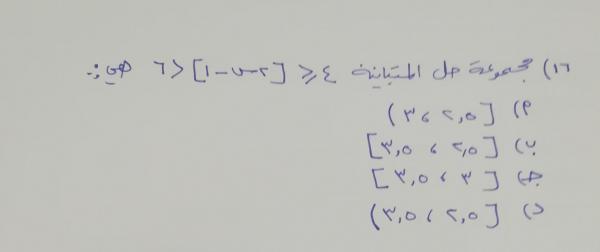 ١٦) مجموعة حل المتباينة ٤ ≤ [٢س-١] < ٦ هي:-
أ) [٢,٥ ، ٣)
ب) [٢,٥ ، ٣,٥]
ج) [٣ ، ٣,٥]
د) [٢,٥ ، ٣,٥)